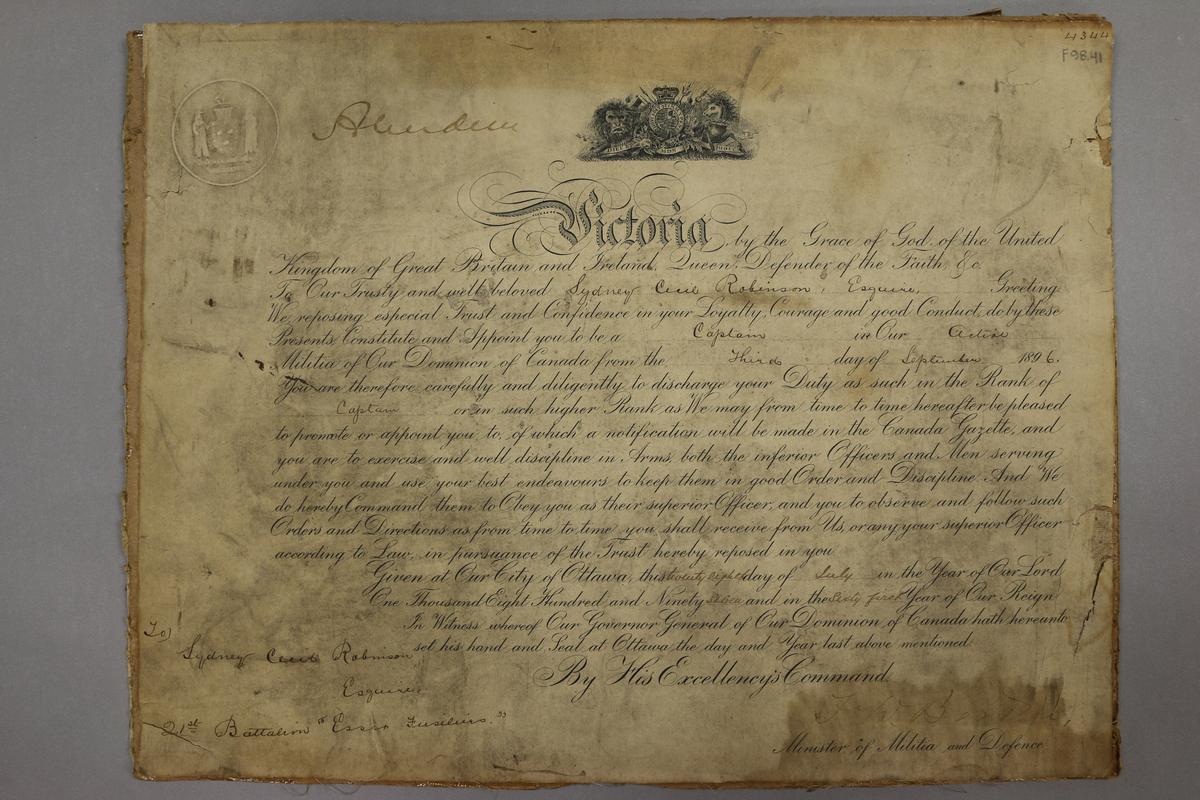 4344
F98.41
Aberdeen
DIEU ET MON DROIT
Victoria, by the Grace of God, of the United
Kingdom of Great Britain and Ireland, Queen, Defender of the Faith, &c.
To Our Trusty and well beloved Sydney Cecil Robinson, Esquire, Greeting.
We, reposing especial Trust and Confidence in your Loyalty, Courage and good Conduct, do by these
Presents, Constitute and Appoint you to be a Captain in Our Active
Militia of Our Dominion of Canada from the Third day of September 1896.
You are therefore carefully and diligently to discharge your Duty as such in the Rank of
Captain or in such higher Rank as We may from time to time hereafter be pleased
to promote or appoint you to, of which a notification will be made in the Canada Gazette, and
you are to exercise and well discipline in Arms, both the inferior Officers and Men serving
under you and use your best endeavours to keep them in good Order and Discipline. And We
do hereby Command them to Obey you as their superior Officer, and you to observe and follow such
Orders and Directions as from time to time you shall receive from Us, or any your superior Officer
according to Law, in pursuance of the Trust hereby reposed in you
Given at Our City of Ottawa, this twenty eighth day of July in the Year of Our Lord
One Thousand Eight Hundred and Ninety seven and in the Sixty first Year of Our Reign
In Witness whereof Our Governor General of Our Dominion of Canada hath hereunto
set his hand and Seal at Ottawa the day and Year last above mentioned.
By His Excellency's Command.
To)
Sydney Cecil Robinson
Esquire,
21st Battalion "Essex Fusiliers."
Minister of Militia and Defence